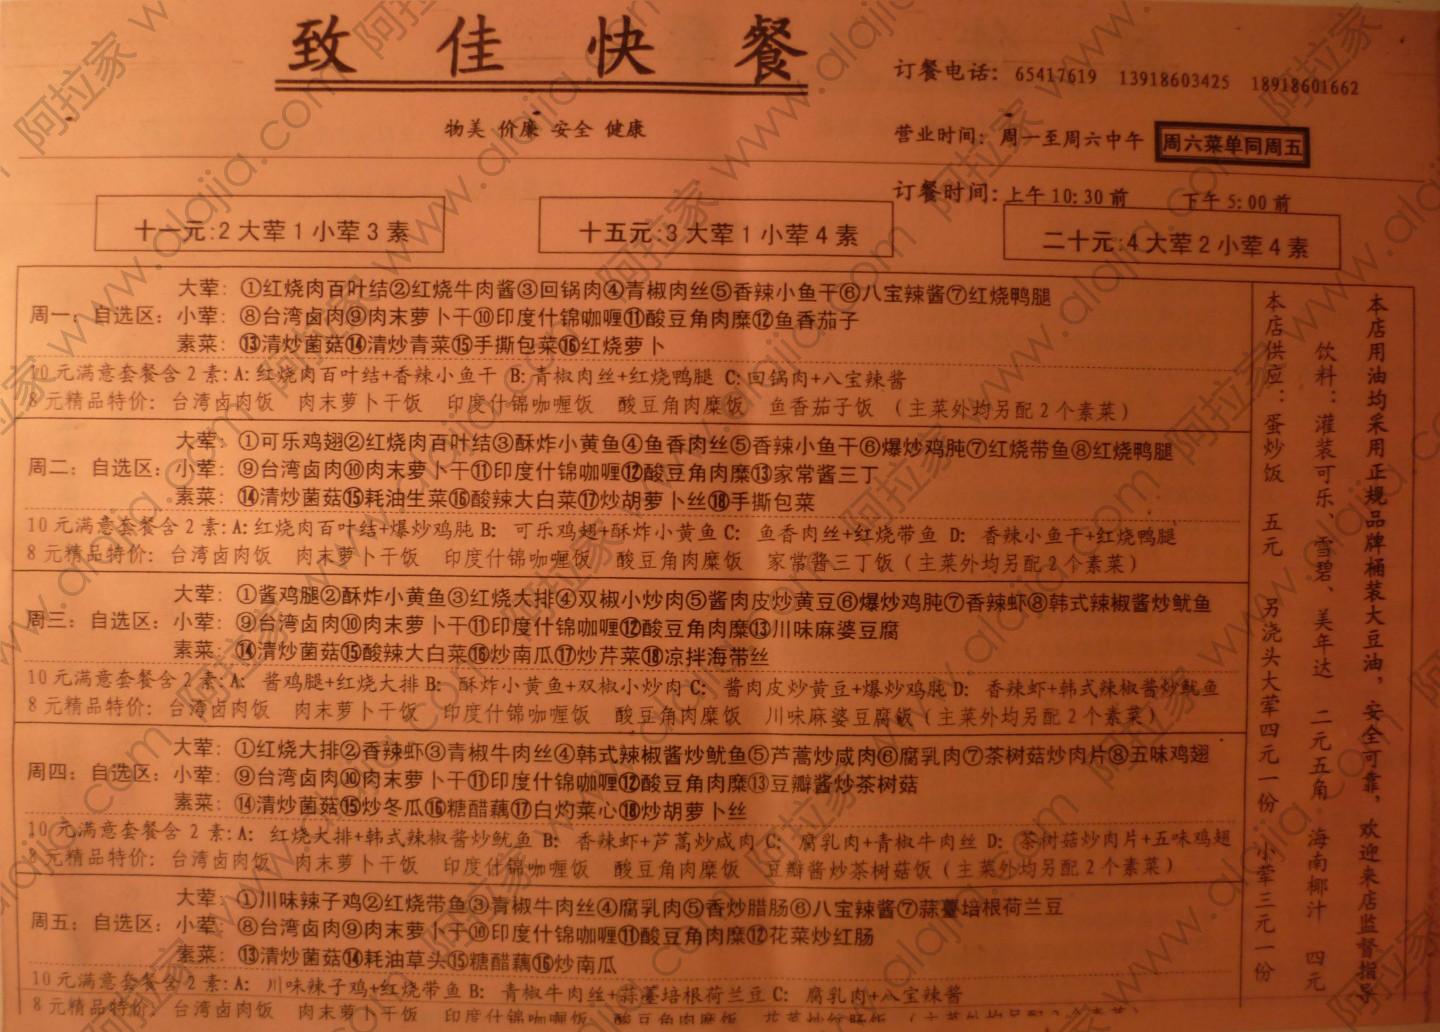 致佳快餐
订餐电话: 65417619 13918603425 18918601662
物美 价廉 安全 健康
营业时间: 周一至周六中午 周六菜单同周五
订餐时间: 上午10:30前 下午5:00前
十一元:2大荤1小荤3素 十五元:3大荤1小荤4素 二十元:4大荤2小荤4素
大荤: ①红烧肉百叶结②红烧牛肉酱③回锅肉④青椒肉丝⑤香辣小鱼干⑥八宝辣酱⑦红烧鸭腿
周一: 自选区: 小荤: ⑧台湾卤肉⑨肉末萝卜干⑩印度什锦咖喱⑪酸豆角肉糜⑫鱼香茄子
素菜: ⑬清炒菌菇⑭清炒青菜⑮手撕包菜⑯红烧萝卜
10元满意套餐含2素: A: 红烧肉百叶结+香辣小鱼干 B: 青椒肉丝+红烧鸭腿 C: 回锅肉+八宝辣酱
8元精品特价: 台湾卤肉饭 肉末萝卜干饭 印度什锦咖喱饭 酸豆角肉糜饭 鱼香茄子饭 (主菜外均另配2个素菜)
大荤: ①可乐鸡翅②红烧肉百叶结③酥炸小黄鱼④鱼香肉丝⑤香辣小鱼干⑥爆炒鸡肫⑦红烧带鱼⑧红烧鸭腿
周二: 自选区: 小荤: ⑨台湾卤肉⑩肉末萝卜干⑪印度什锦咖喱⑫酸豆角肉糜⑬家常酱三丁
素菜: ⑭清炒菌菇⑮耗油生菜⑯酸辣大白菜⑰炒胡萝卜丝⑱手撕包菜
10元满意套餐含2素: A: 红烧肉百叶结+爆炒鸡肫 B: 可乐鸡翅+酥炸小黄鱼 C: 鱼香肉丝+红烧带鱼 D: 香辣小鱼干+红烧鸭腿
8元精品特价: 台湾卤肉饭 肉末萝卜干饭 印度什锦咖喱饭 酸豆角肉糜饭 家常酱三丁饭 (主菜外均另配2个素菜)
大荤: ①酱鸡腿②酥炸小黄鱼③红烧大排④双椒小炒肉⑤酱肉皮炒黄豆⑥爆炒鸡肫⑦香辣虾⑧韩式辣椒酱炒鱿鱼
周三: 自选区: 小荤: ⑨台湾卤肉⑩肉末萝卜干⑪印度什锦咖喱⑫酸豆角肉糜⑬川味麻婆豆腐
素菜: ⑭清炒菌菇⑮酸辣大白菜⑯炒南瓜⑰炒芹菜⑱凉拌海带丝
10元满意套餐含2素: A: 酱鸡腿+红烧大排 B: 酥炸小黄鱼+双椒小炒肉 C: 酱肉皮炒黄豆+爆炒鸡肫 D: 香辣虾+韩式辣椒酱炒鱿鱼
8元精品特价: 台湾卤肉饭 肉末萝卜干饭 印度什锦咖喱饭 酸豆角肉糜饭 川味麻婆豆腐饭 (主菜外均另配2个素菜)
大荤: ①红烧大排②香辣虾③青椒牛肉丝④韩式辣椒酱炒鱿鱼⑤芦蒿炒咸肉⑥腐乳肉⑦茶树菇炒肉片⑧五味鸡翅
周四: 自选区: 小荤: ⑨台湾卤肉⑩肉末萝卜干⑪印度什锦咖喱⑫酸豆角肉糜⑬豆瓣酱炒茶树菇
素菜: ⑭清炒菌菇⑮炒冬瓜⑯糖醋藕⑰白灼菜心⑱炒胡萝卜丝
10元满意套餐含2素: A: 红烧大排+韩式辣椒酱炒鱿鱼 B: 香辣虾+芦蒿炒咸肉 C: 腐乳肉+青椒牛肉丝 D: 茶树菇炒肉片+五味鸡翅
8元精品特价: 台湾卤肉饭 肉末萝卜干饭 印度什锦咖喱饭 酸豆角肉糜饭 豆瓣酱炒茶树菇饭 (主菜外均另配2个素菜)
大荤: ①川味辣子鸡②红烧带鱼③青椒牛肉丝④腐乳肉⑤香炒腊肠⑥八宝辣酱⑦蒜薹培根荷兰豆
周五: 自选区: 小荤: ⑧台湾卤肉⑨肉末萝卜干⑩印度什锦咖喱⑪酸豆角肉糜⑫花菜炒红肠
素菜: ⑬清炒菌菇⑭耗油草头⑮糖醋藕⑯炒南瓜
10元满意套餐含2素: A: 川味辣子鸡+红烧带鱼 B: 青椒牛肉丝+蒜薹培根荷兰豆 C: 腐乳肉+八宝辣酱
8元精品特价: 台湾卤肉饭 肉末萝卜干饭 印度什锦咖喱饭 酸豆角肉糜饭 花菜炒红肠饭 (主菜外均另配2个素菜)
本店用油均采用正规品牌桶装大豆油,安全可靠,欢迎来店监督指导
饮料: 灌装可乐、雪碧、美年达 二元五角 海南椰汁 四元
本店供应: 蛋炒饭 五元 另浇头大荤四元一份 小荤三元一份
阿拉家 www.alajia.com